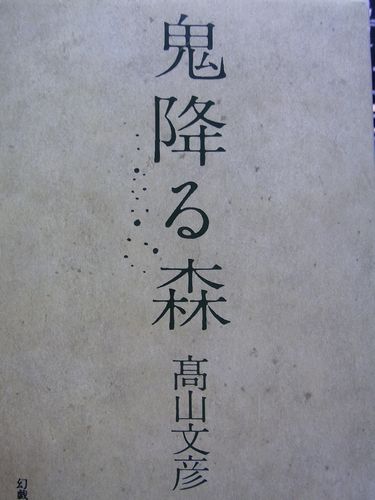 鬼降る森
髙山文彦
幻戯